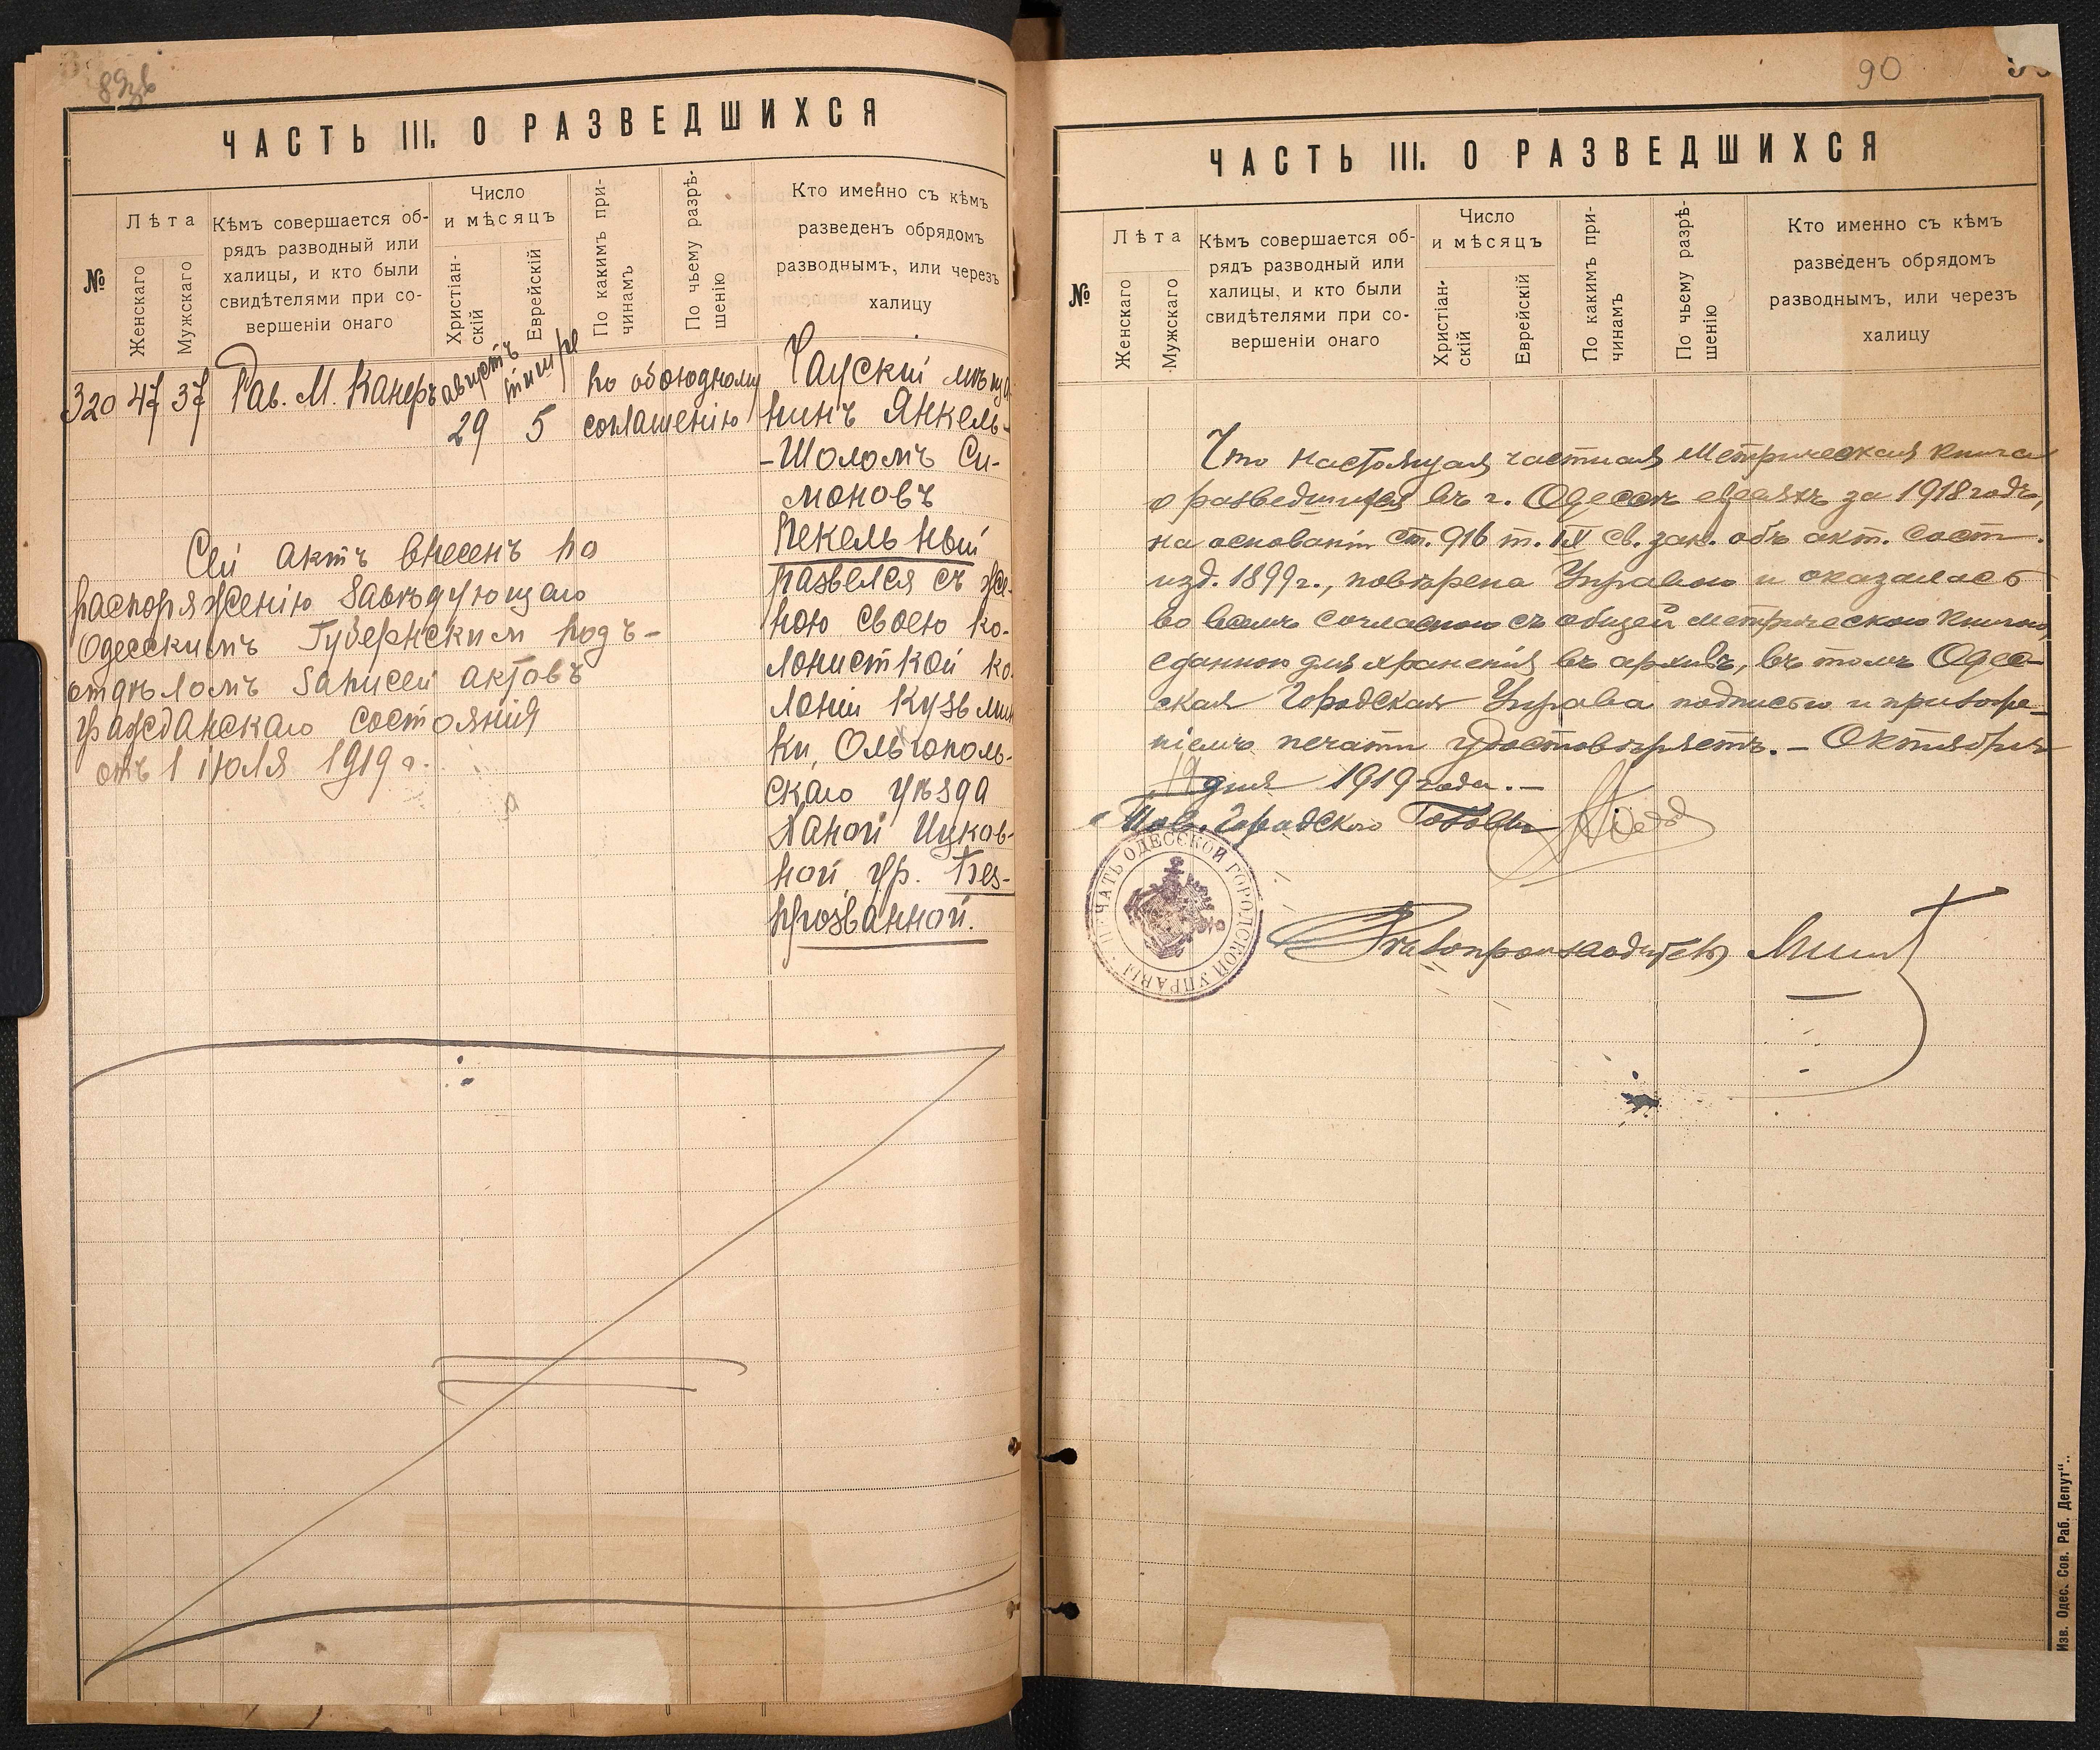 89зв
ЧАСТЬ III. О РАЗВЕДШИХСЯ
№
Лѣта
Женскаго
Мужскаго
Кѣмъ совершается об-
рядъ разводный или
халицы, и кто были
свидѣтелями при со-
вершеніи онаго
Число
и мѣсяцъ
Христіан-
скій
Еврейскій
По какимъ при-
чинамъ
По чьему разрѣ-
шенію
Кто именно съ кѣмъ
разведенъ обрядомъ
разводнымъ, или черезъ
халицу
320 47 37 Рав. М. Канеръ
августъ
29
тишре
5
по обоюдному
соглашенію
Чаускій мѣща
нинъ Янкель-
-Шоломъ Си-
моновъ
Пекельный
развелся съ же-
ною своею ко-
лонисткой ко-
лоніи Кузьмин
ки, Ольгополь-
скаго уѣзда
Ханой Ицков-
ной, ур. Без-
прозванной.
Сей актъ внесенъ по
распоряженію Завѣдующаго
Одесскимъ Губернским подъ-
отдѣломъ Записей актовъ
гражданскаго состоянія
отъ 1 іюля 1919 г.
90
ЧАСТЬ III. О РАЗВЕДШИХСЯ
№
Лѣта
Женскаго
Мужскаго
Кѣмъ совершается об-
рядъ разводный или
халицы, и кто были
свидѣтелями при со-
вершеніи онаго
Число
и мѣсяцъ
Христіан-
скій
Еврейскій
По какимъ при-
чинамъ
По чьему разрѣ-
шенію
Кто именно съ кѣмъ
разведенъ обрядомъ
разводнымъ, или черезъ
халицу
Что настоящая частная метрическая книга
о разведшихся въ г. Одессѣ евреяхъ за 1918 годъ,
на основаніи ст. 916 т. IX св. зак. объ акт. сост.
изд. 1899 г., повѣрена Управою и оказалась
во всемъ согласною съ общей метрическою книгою,
сданною для храненія въ архивъ, въ томъ Одес-
ская Городская Управа подписью и приложе-
ніемъ печати удостовѣряетъ. - Октября
дня 1919 года. -
Городского Головы
ПЕЧАТЬ ОДЕССКОЙ ГОРОДСКОЙ УПРАВЫ
Дѣлопроизводитель
Изв. Одес. Сов. Раб. Депут“.